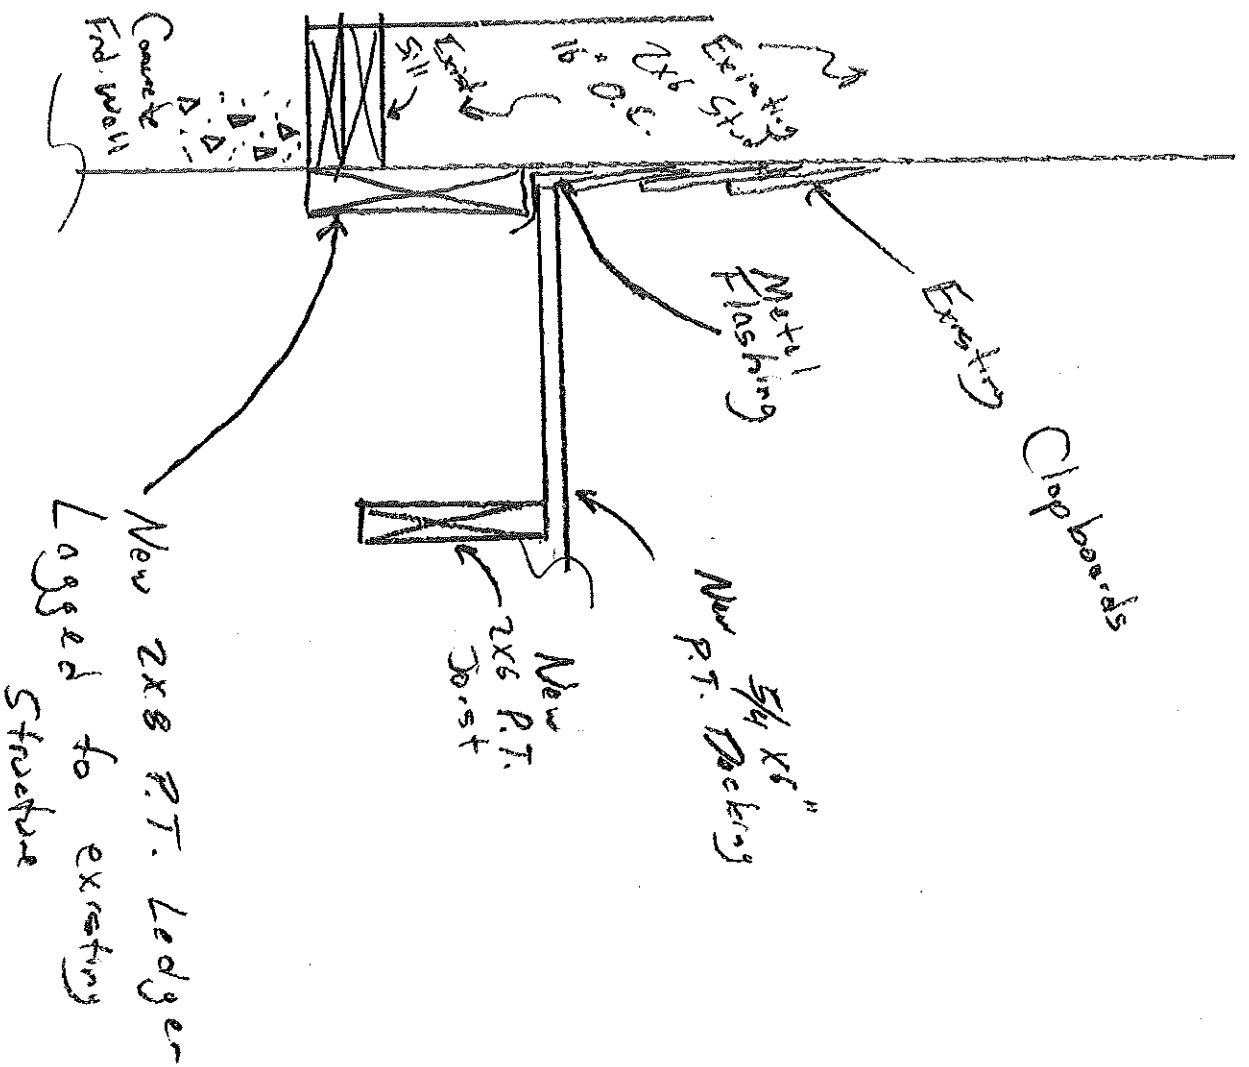 Existing
2x6 Stud
16" O.C.
Exist.
Sill
Concrete
Fnd. Wall
Existing Clapboards
Metal
Flashing
New 5/4 x6"
P.T. Decking
New
2x6 P.T.
Joist
New 2x8 P.T. Ledger
Lagged to existing
Structure